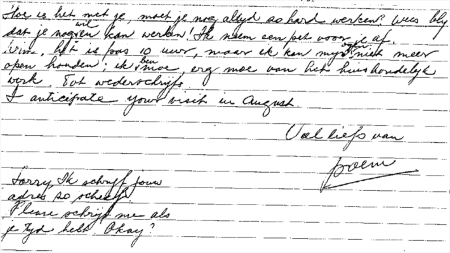 Hoe is het met je, moet je nog altyd as hard werken? Wees bly
dat je nog wil kan werken! Ik neem een pet voor je af
is pas 10 uur, maar ik kan myn ogen niet meer
open houden; ik ben moe, erg moe van het huishoudelyk
werk. Tot wederschrijfs.
I anticipate your visit in August.
Veel liefs van
poem
Sorry, Ik schryf jouw
adres so scheef.
Please schryf me als
je tyd hebt Okay?